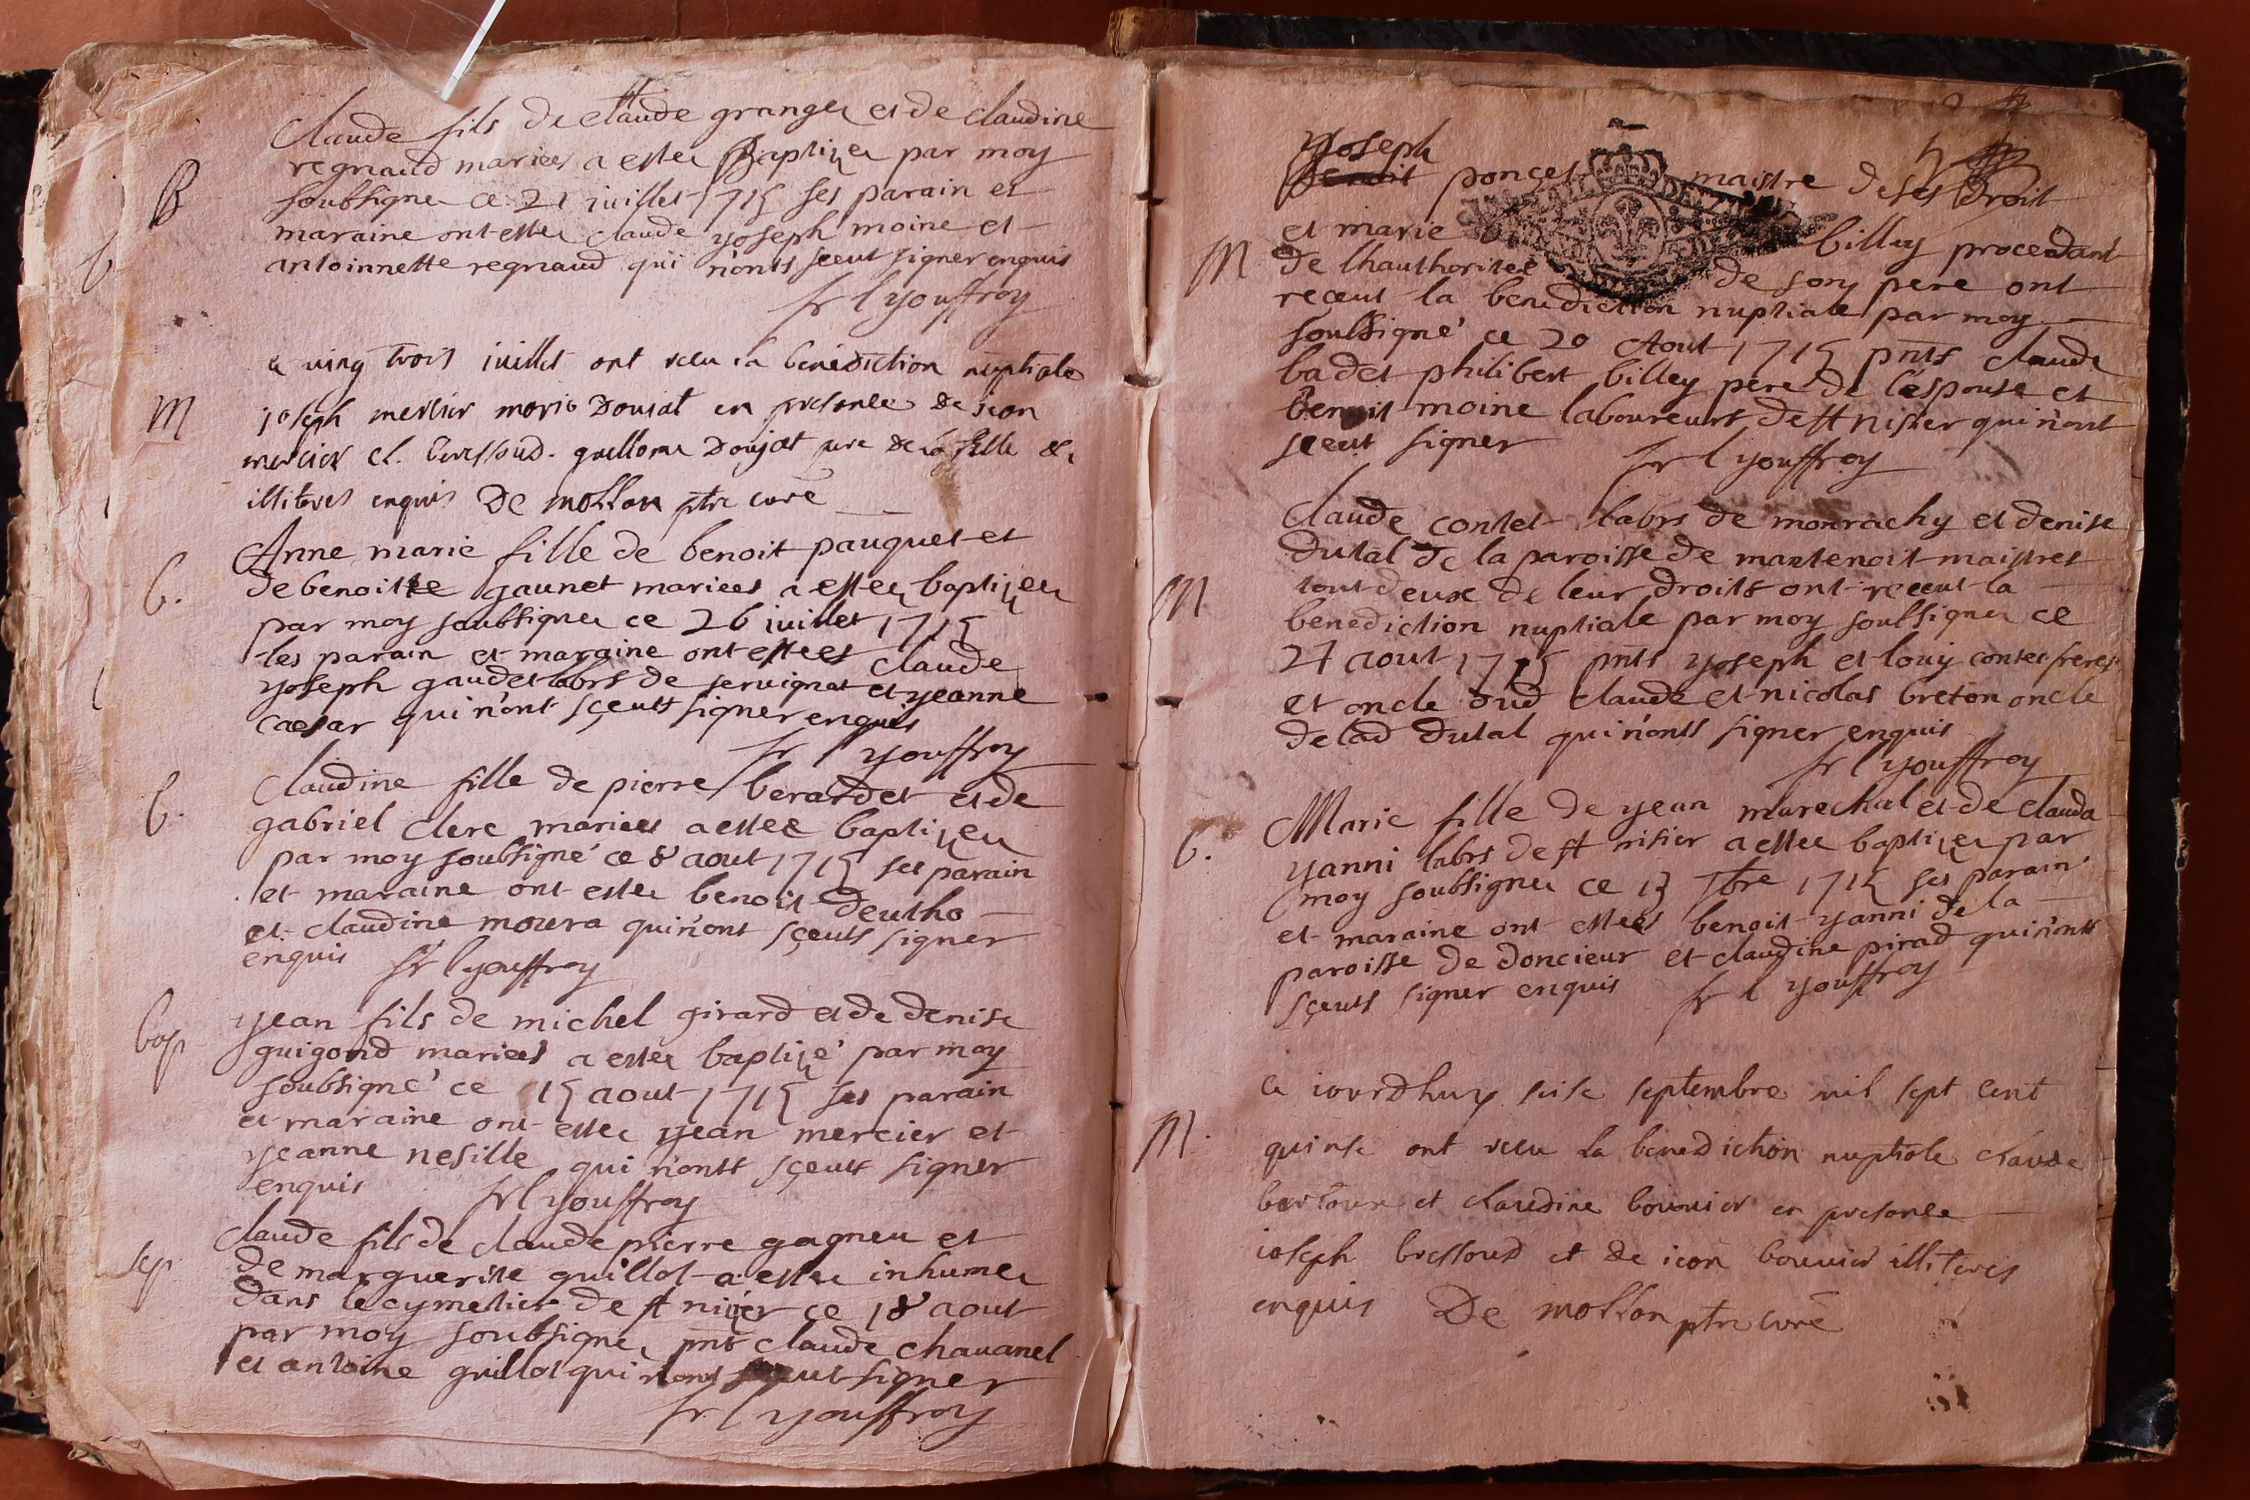 Claude fils de claude granger et de claudine
B
regnaud mariees a estee Baptizee par moy
soubsignee ce 21 juillet 1715 ses parain et
maraine ont estee claude yoseph moine et
antoinnette regnaud qui n'onts sceut signer enquis
fr l youffroy
ce ving trois juillet ont receu la benediction nuptiale
M
joseph mercier marie Doujat en presence de jean
mercier cl. bressoud. guillome Doujat pere de la fille &
illiteres enquis De mollon ptre curé
Anne marie fille de benoit pauquet et
b.
de benoitte gaunet mariees a estee baptizee
par moy soubsignee ce 26 juillet 1715
les parain et maraine ont estees claude
yoseph gaudet labrs de servignat et yeanne
caesar qui n'ont sçeuts signer enquis
fr l youffroy
Claudine fille de pierre berardet et de
b.
gabriel clerc mariees a estee baptizee
par moy soubsigné ce 8 aout 1715 ses parain
et maraine ont estee benoit deutho
et claudine moura qui n'ont sçeuts signer
enquis fr l youffroy
yean fils de michel girard et de denise
bap
guigond mariees a estee baptizé par moy
soubsigné ce 15 aout 1715 ses parain
et maraine ont estee yean mercier et
yeanne nesille qui n'onts sçeuts signer
enquis fr l youffroy
claude fils de claude pierre gagneu et
sep
de marguerite guillot a estee inhumee
dans le cymetier de st nizier ce 18 aout
par moy soubsigne, pnts claude chavanel
et antoine guillot qui n'ont sceut signer
fr l youffroy
yoseph
benoit ponçet maistre de ses droit
et marie billey procedant
M
de lhauthoritee de son pere ont
receut la benediction nuptiale par moy
soubsigné ce 20 Aout 1715 pnts claude
badet philibert billey pere de l'espouse et
benoit moine laboureurs de st nisier qui n'ont
sceut signer fr l youffroy
Claude contet labrs de monrachy et denise
dutal de la paroisse de mantenoit maistres
M
tout deux de leur droits ont receut la
benediction nuptiale par moy soubsignee ce
27 aout 1715 pnts yoseph et louy contet freres
et oncle dud claude et nicolas breton oncle
de lad dutal qui n'onts signer enquis
fr l youffroy
Marie fille de yean marechal et de clauda
b.
yanni labrs de st nisier a estee baptizee par
moy soubsignee ce 13 7bre 1715 ses parain
et maraine ont estees benoit yanni de la
paroisse de doncieur et claudine pirad qui n'onts
sçeuts signer enquis fr l youffroy
ce jourdhuy seise septembre mil sept cent
M.
quinse ont receu la benediction nuptiale claude
et claudine bouvier en presence
joseph bressoud et de jean bouvier illiteres
enquis De mollon ptre curé